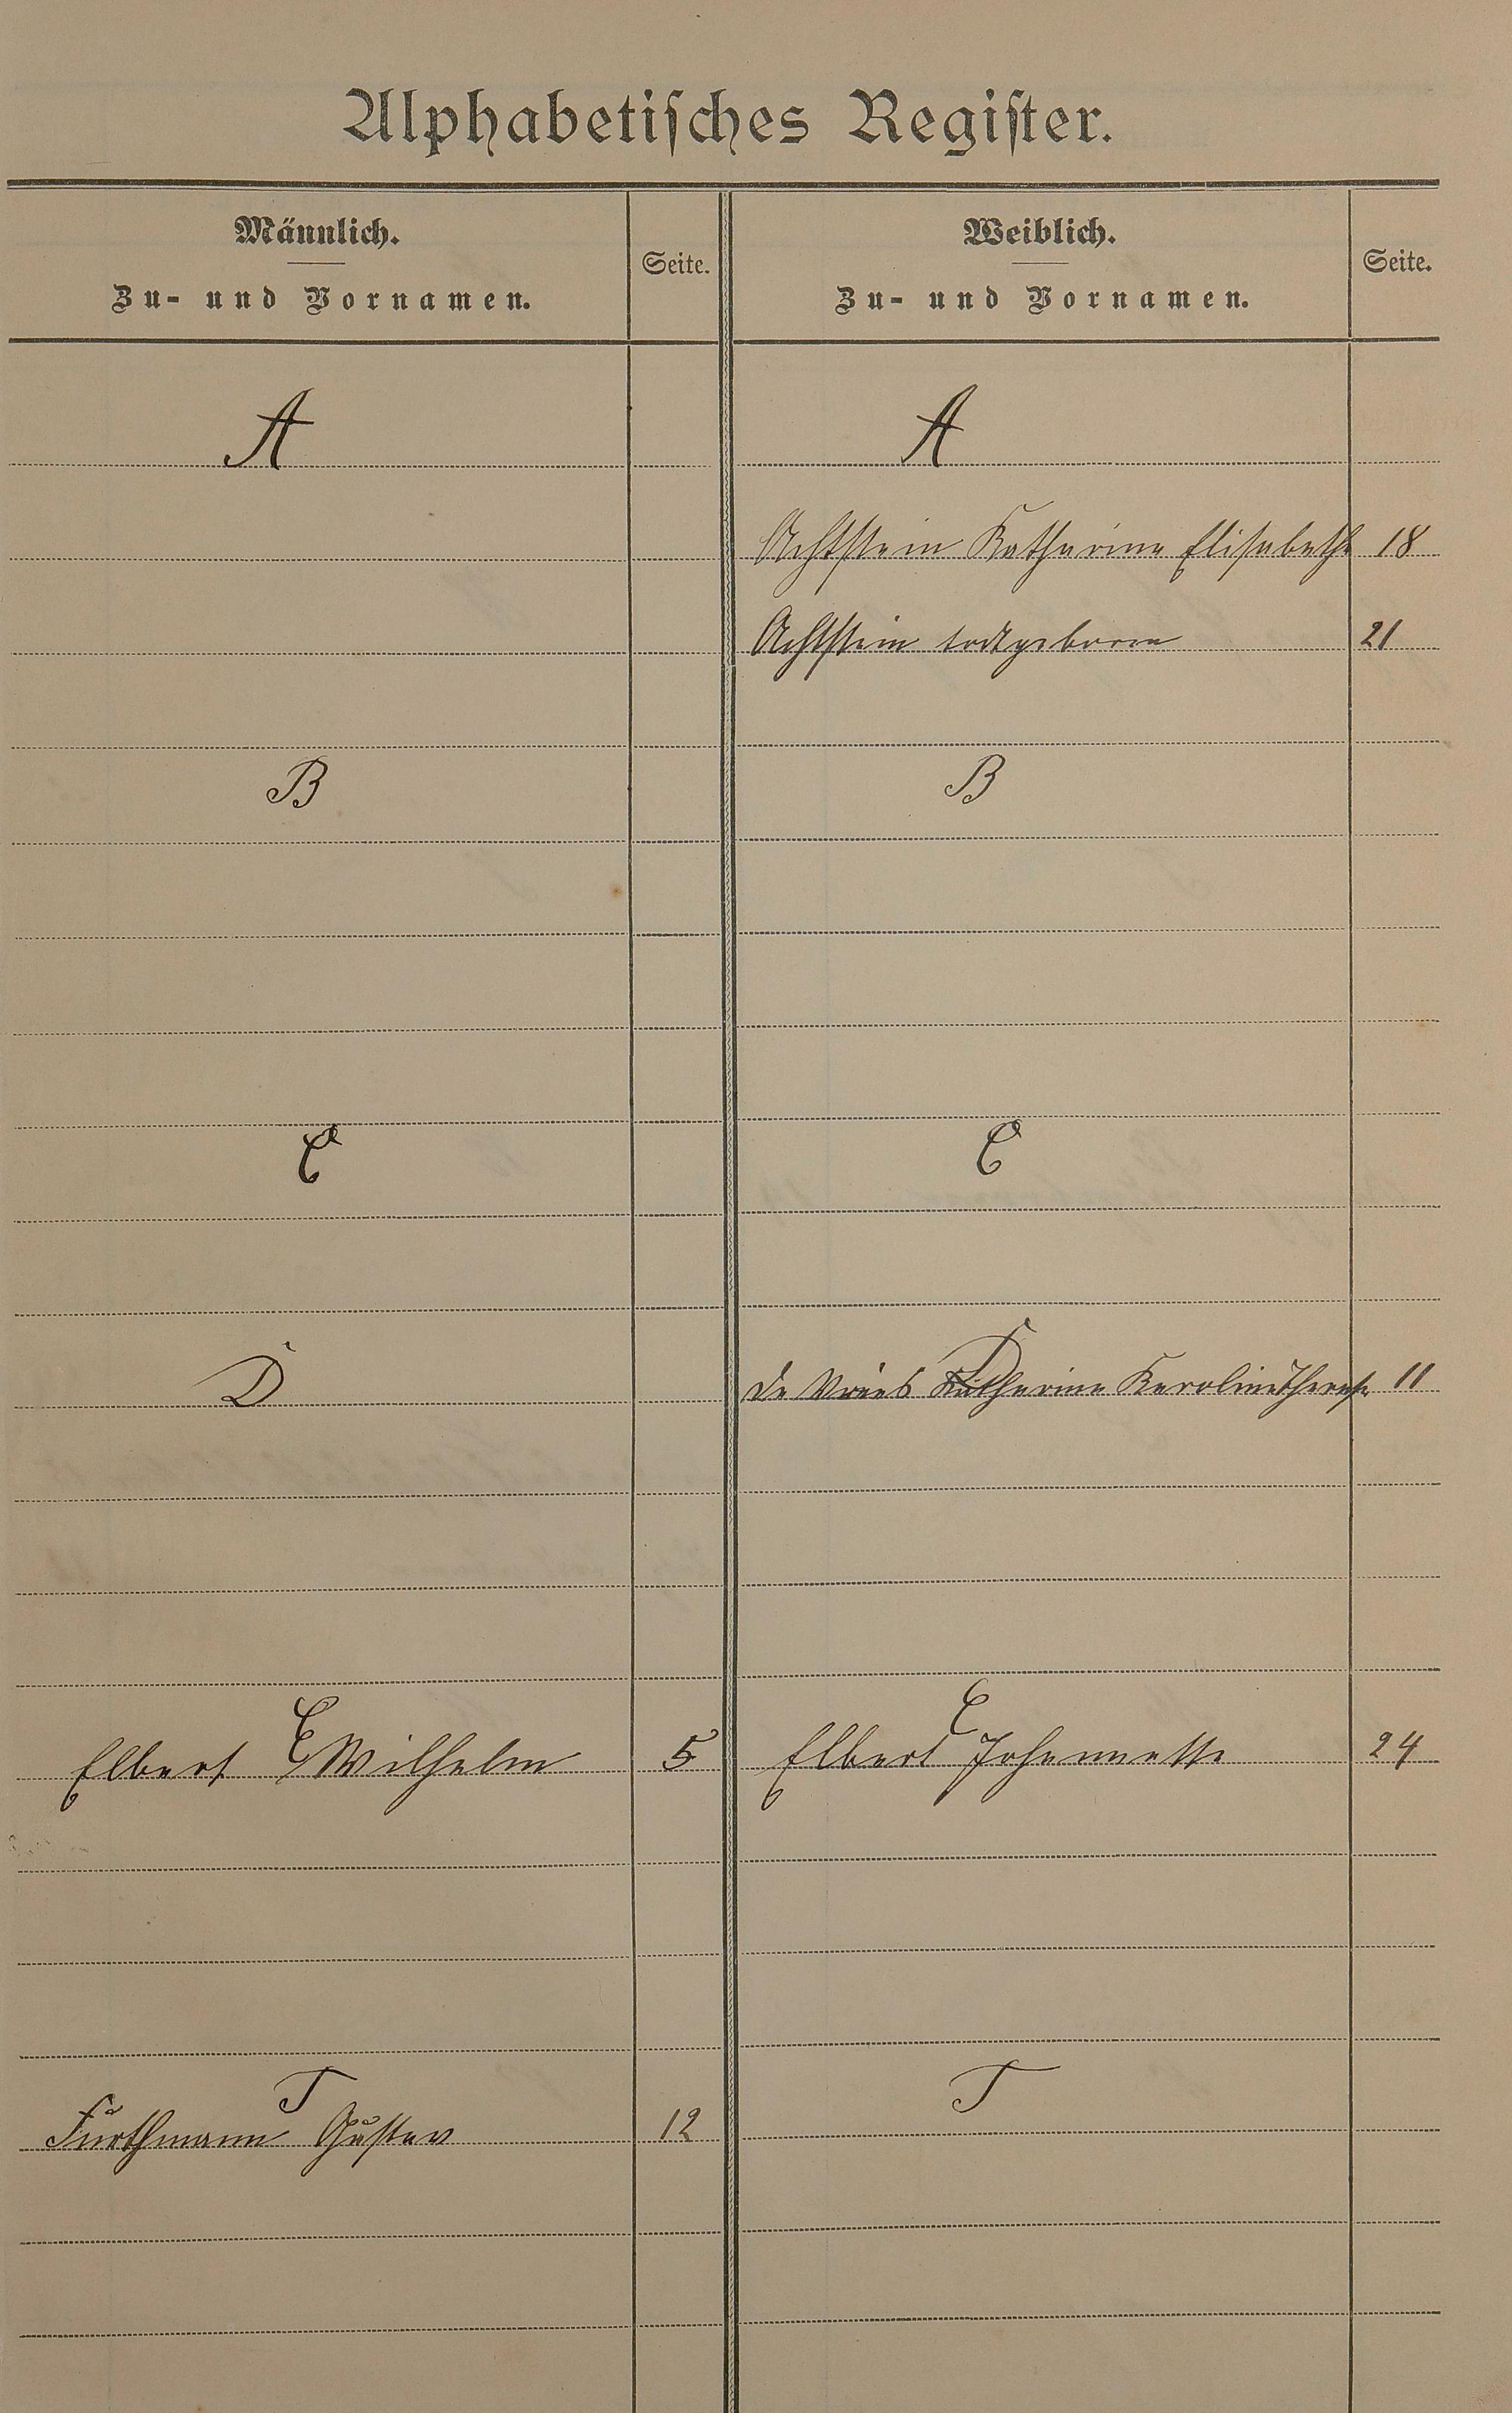 Alphabetisches Register.
Männlich.
Zu- und Vornamen.
Seite.
Weiblich.
Zu- und Vornamen.
Seite.
A
A
Achtstein Katharina Elisabeth 18
Achtstein todtgeboren 21
B
B
C
C
D
D
de Vries Katharina Karolina Therese 11
E
E
Elbert Wilhelm 5
Elbert Johannette 24
F
F
Furthmann Gustav 12